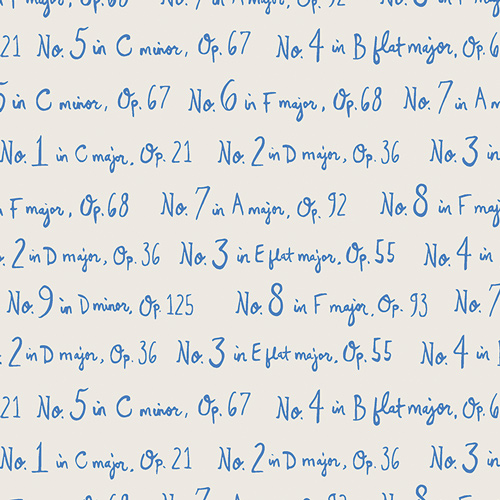 F major, Op. 68 No. 7 in A major, Op. 92 No. 8 in F maj
21 No. 5 in C minor, Op. 67 No. 4 in B flat major, Op. 6
5 in C minor, Op. 67 No. 6 in F major, Op. 68 No. 7 in A m
No. 1 in C major, Op. 21 No. 2 in D major, Op. 36 No. 3 in
F major, Op. 68 No. 7 in A major, Op. 92 No. 8 in F maj
. 2 in D major, Op. 36 No. 3 in E flat major, Op. 55 No. 4 in
No. 9 in D minor, Op 125 No. 8 in F major, Op. 93 No. 7
. 2 in D major, Op. 36 No. 3 in E flat major, Op. 55 No. 4 in B
21 No. 5 in C minor, Op. 67 No. 4 in B flat major, Op. 6
No. 1 in C major, Op. 21 No. 2 in D major, Op. 36 No. 3 in